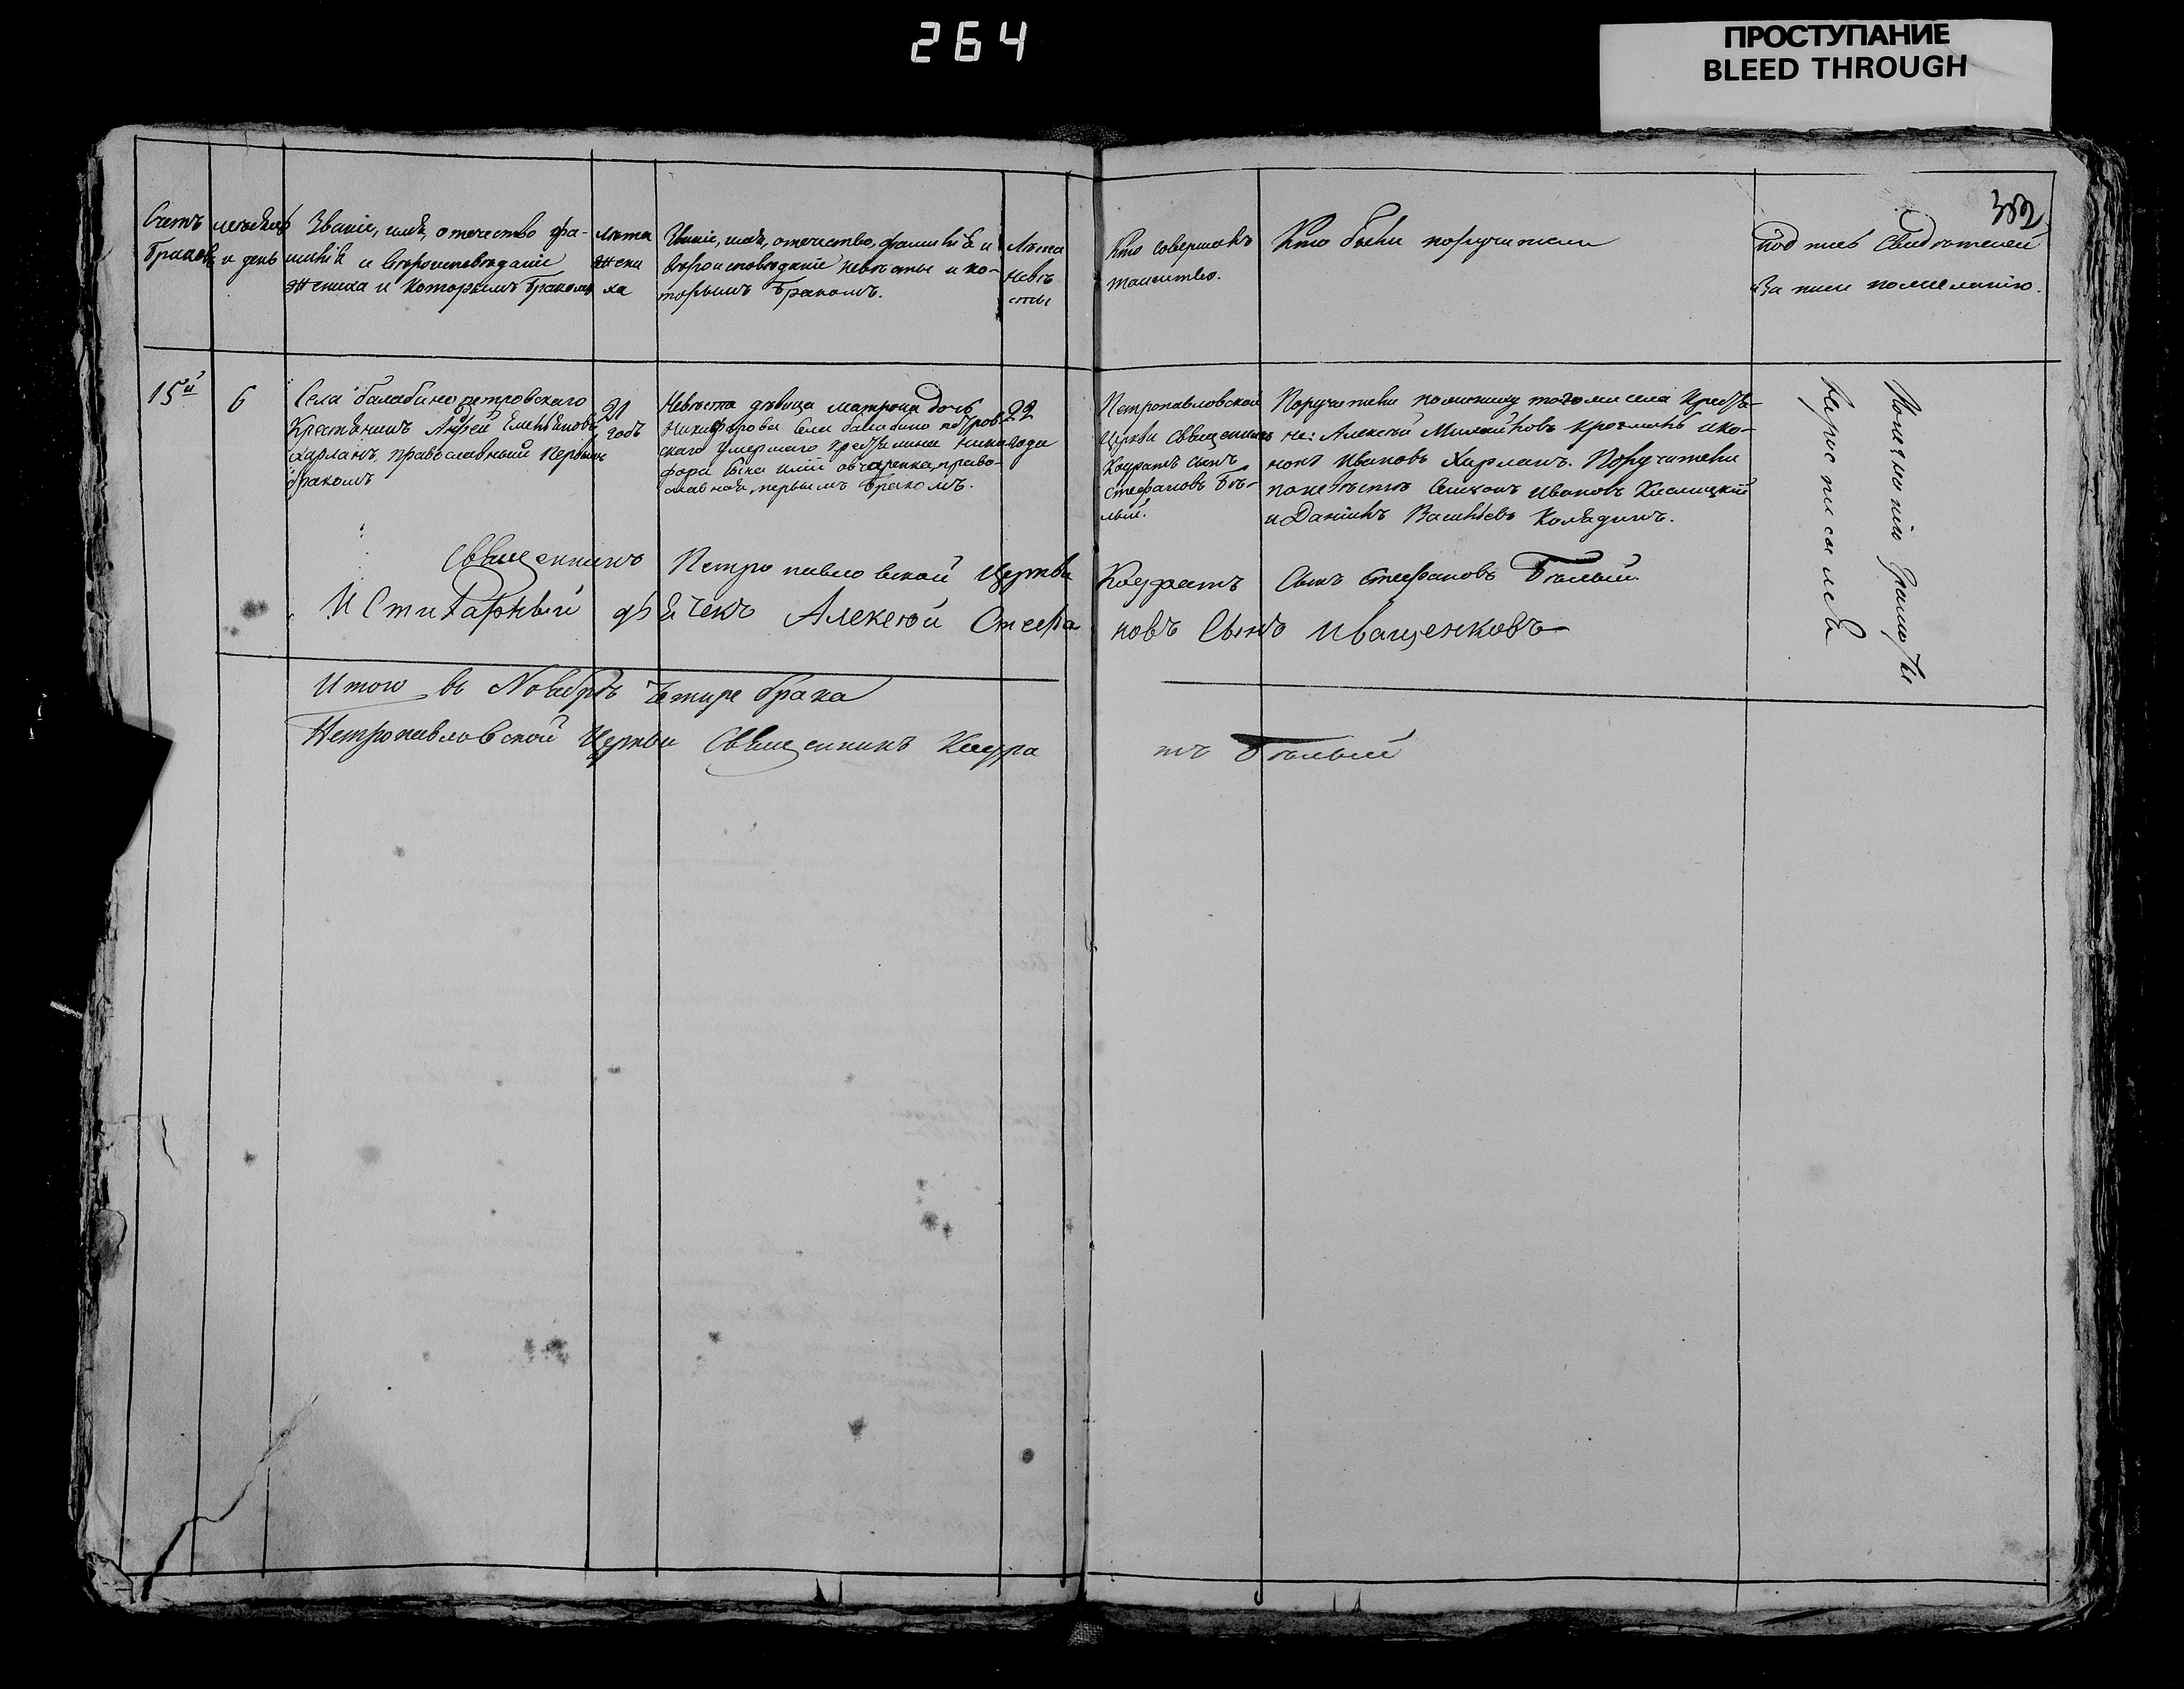 264
ПРОСТУПАНИЕ
BLEED THROUGH
382
Счетъ
браковъ
мѣсяцъ
и день
Званіе, имя, отечество фа-
милія и вѣроисповѣданіе
жениха и которымъ бракомъ
Лѣта
жени
ха
Званіе, имя, отечество, фамилія и
вѣроисповѣданіе невѣсты и ко-
торымъ бракомъ.
Лѣта
невѣ
сты
Кто совершалъ
таинство.
Кто были поручители
Подпись свидѣтелей
записи по желанію.
15й
6
Села балабино петровскаго
Крестьянинъ Андрей Емельяновъ
Харланъ, православный первымъ
бракомъ
21
годъ
Невѣста дѣвица матрона дочь
Никифорова села балабино петров
скаго умершаго крестьянина Ники
фора сына овчаренка, право-
славная, первымъ бракомъ.
22
года
Петропавловской
Церкви Священникъ
Кодратъ сынъ
Стефановъ Бѣ-
лый.
Поручители по жениху того же села Крестья-
не: Алексѣй Михайловъ и ко-
нонъ Ивановъ Харланъ. Поручители
по невѣстѣ Ивановъ Кислицкій
и Даніилъ Васильевъ Колядинъ.
Священникъ Петропавловской Церкви Кодратъ Сынъ Стефановъ Бѣлый.
И Стихарный дьячекъ Алексѣй Стефановъ Сынъ Иващенковъ
Итого въ Ноябрѣ четыре брака
Петропавловской Церкви Священникъ Кодратъ Бѣлый